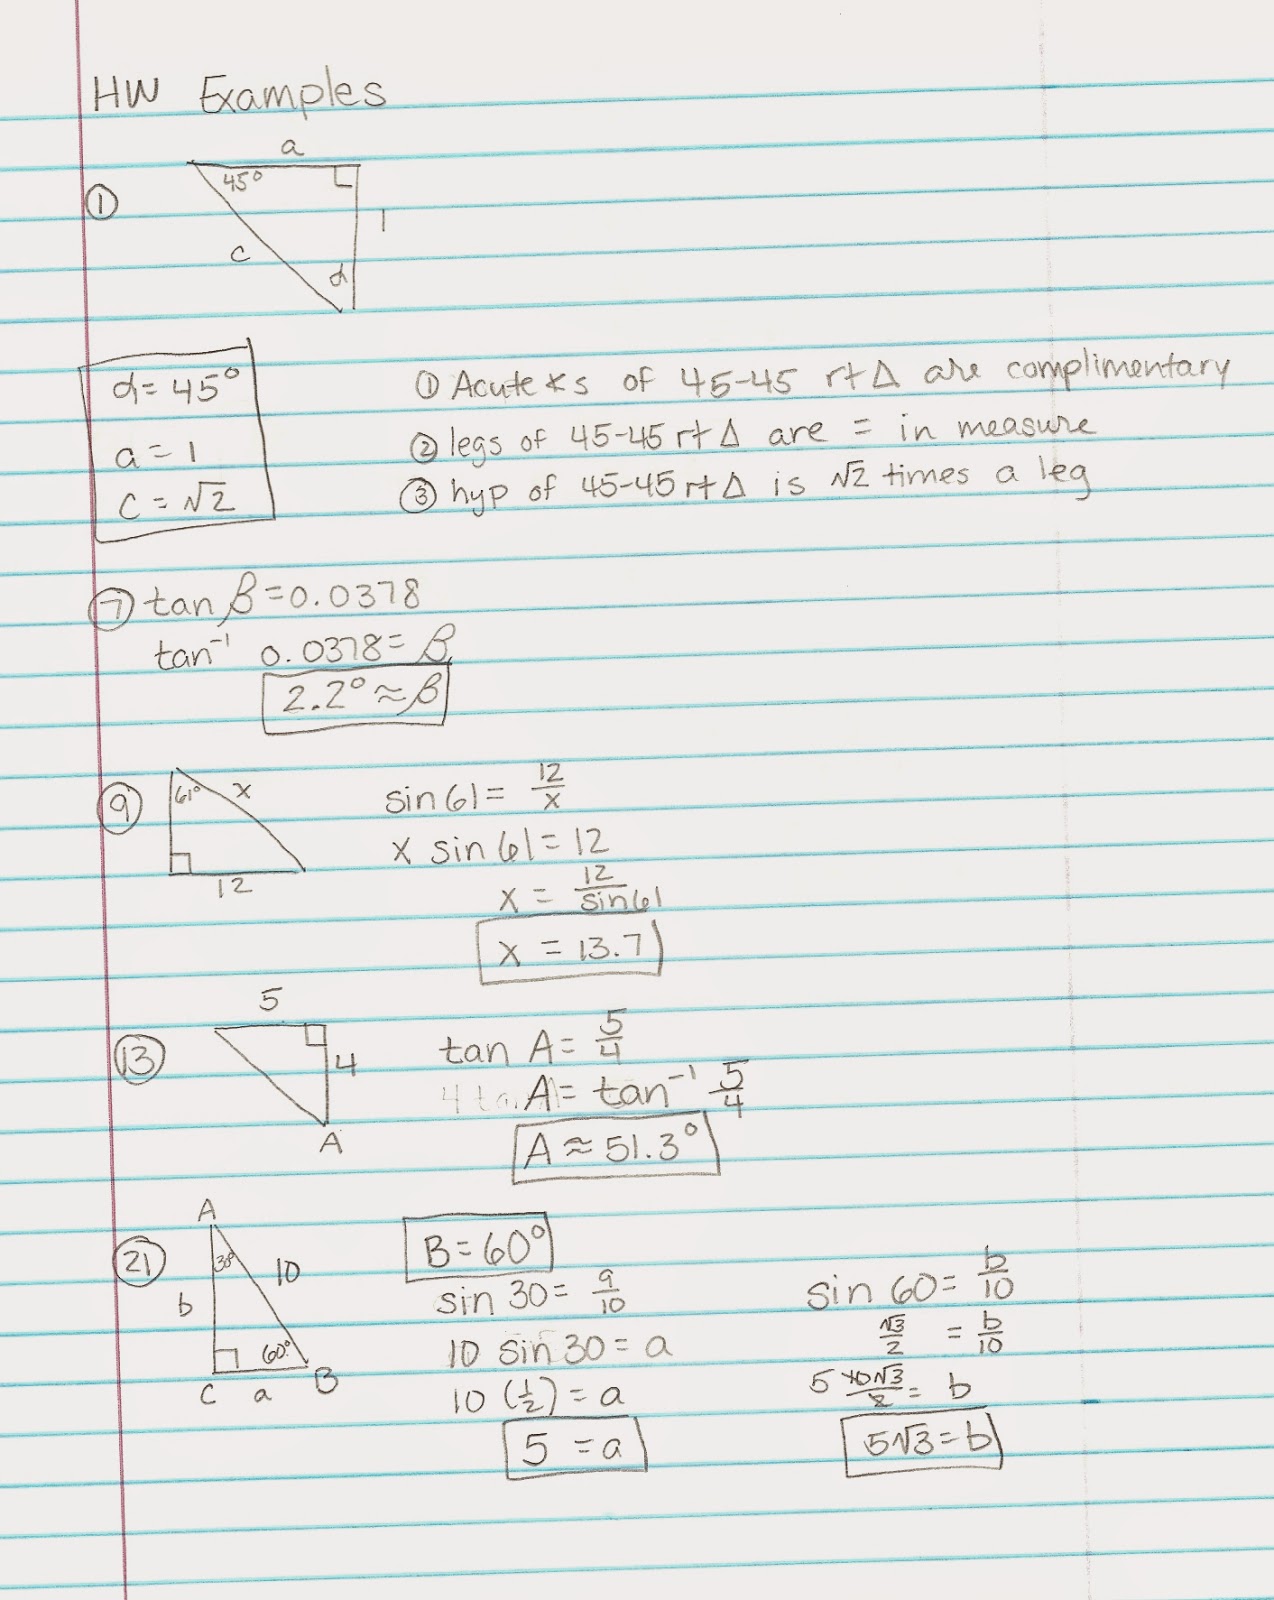 HW Examples
① a
45°
1
c
α
α = 45°
a = 1
c = √2
① Acute ∡s of 45-45 rt △ are complimentary
② legs of 45-45 rt △ are = in measure
③ hyp of 45-45 rt △ is √2 times a leg
⑦ tan β = 0.0378
tan⁻¹ 0.0378 = β
2.2° ≈ β
⑨ 61° x
12
sin 61 = 12/x
x sin 61 = 12
x = 12/sin 61
x = 13.7
⑬ 5
4
A
tan A = 5/4
A = tan⁻¹ 5/4
A ≈ 51.3°
㉑ A
30° 10
b
60°
C a B
B = 60°
sin 30 = a/10
10 sin 30 = a
10 (1/2) = a
5 = a
sin 60 = b/10
√3/2 = b/10
5 10√3/2 = b
5√3 = b